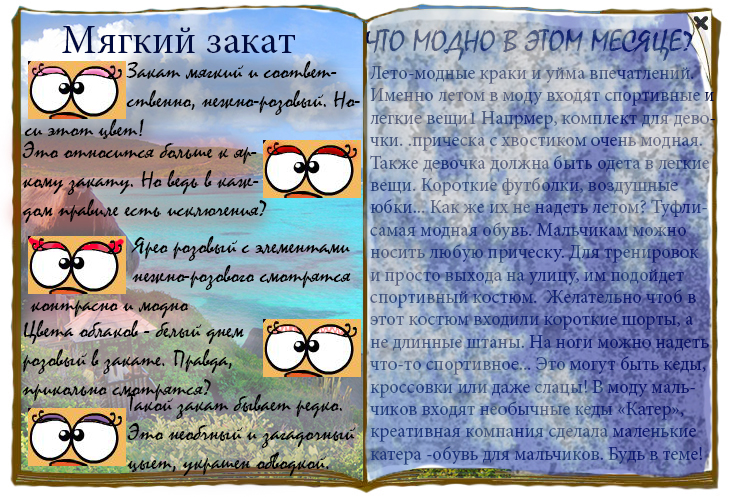 Мягкий закат
Закат мягкий и соответ-
ственно, нежно-розовый. Но-
си этот цвет!
Это относится больше к яр-
кому закату. Но ведь в каж-
дом правиле есть исключения?
Ярео розовый с элементами
нежно-розового смотрятся
контрасно и модно
Цвета облаков - белый днем
розовый в закате. Правда,
прикольно смотрятся?
Такой закат бывает редко.
Это необчный и загадочный
цыет, украшен обводкой.
ЧТО МОДНО В ЭТОМ МЕСЯЦЕ?
Лето-модные краки и уйма впечатлений.
Именно летом в моду входят спортивные и
легкие вещи! Напрмер, комплект для дево-
чки. .прическа с хвостиком очень модная.
Также девочка должна быть одета в легкие
вещи. Короткие футболки, воздушные
юбки... Как же их не надеть летом? Туфли-
самая модная обувь. Мальчикам можно
носить любую прическу. Для тренировок
и просто выхода на улицу, им подойдет
спортивный костюм. Желательно чтоб в
этот костюм входили короткие шорты, а
не длинные штаны. На ноги можно надеть
что-то спортивное... Это могут быть кеды,
кроссовки или даже слацы! В моду маль-
чиков входят необычные кеды «Катер»,
креативная компания сделала маленькие
катера -обувь для мальчиков. Будь в теме!